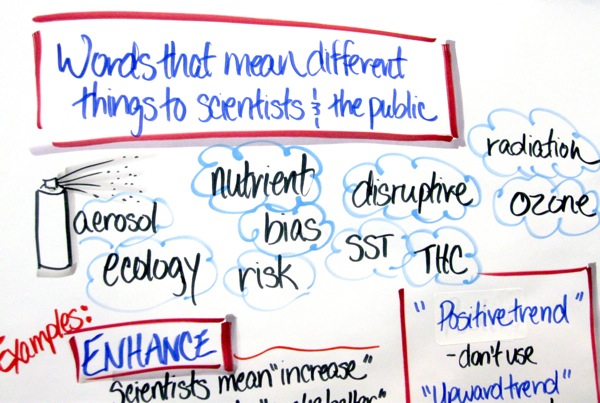 Words that mean different
things to scientists & the public
radiation
nutrient
disruptive
ozone
aerosol
bias
SST
THC
ecology
risk
Examples:
ENHANCE
Scientists mean "increase"
"Positive trend"
-don't use
"Upward trend"